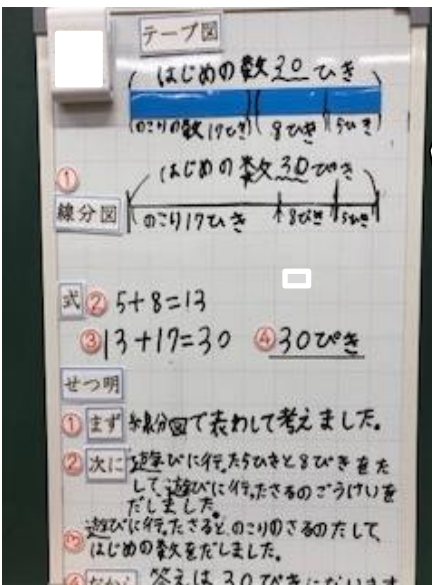 テープ図
はじめの数30ひき
のこりの数17ひき 8ひき 5ひき
① はじめの数30ぴき
線分図 のこり17ひき 8ぴき 5ひき
式 ② 5+8=13
③ 13+17=30 ④ 30ぴき
せつ明
① まず 線分図で表わして考えました。
② 次に 遊びに行った5ひきと8ぴきをた
して遊びに行ったさるのごうけいを
だしました。
③ 遊びに行ったさると、のこりのさるのたして、
はじめの数をだしました。
④ だから 答えは30ぴきになります